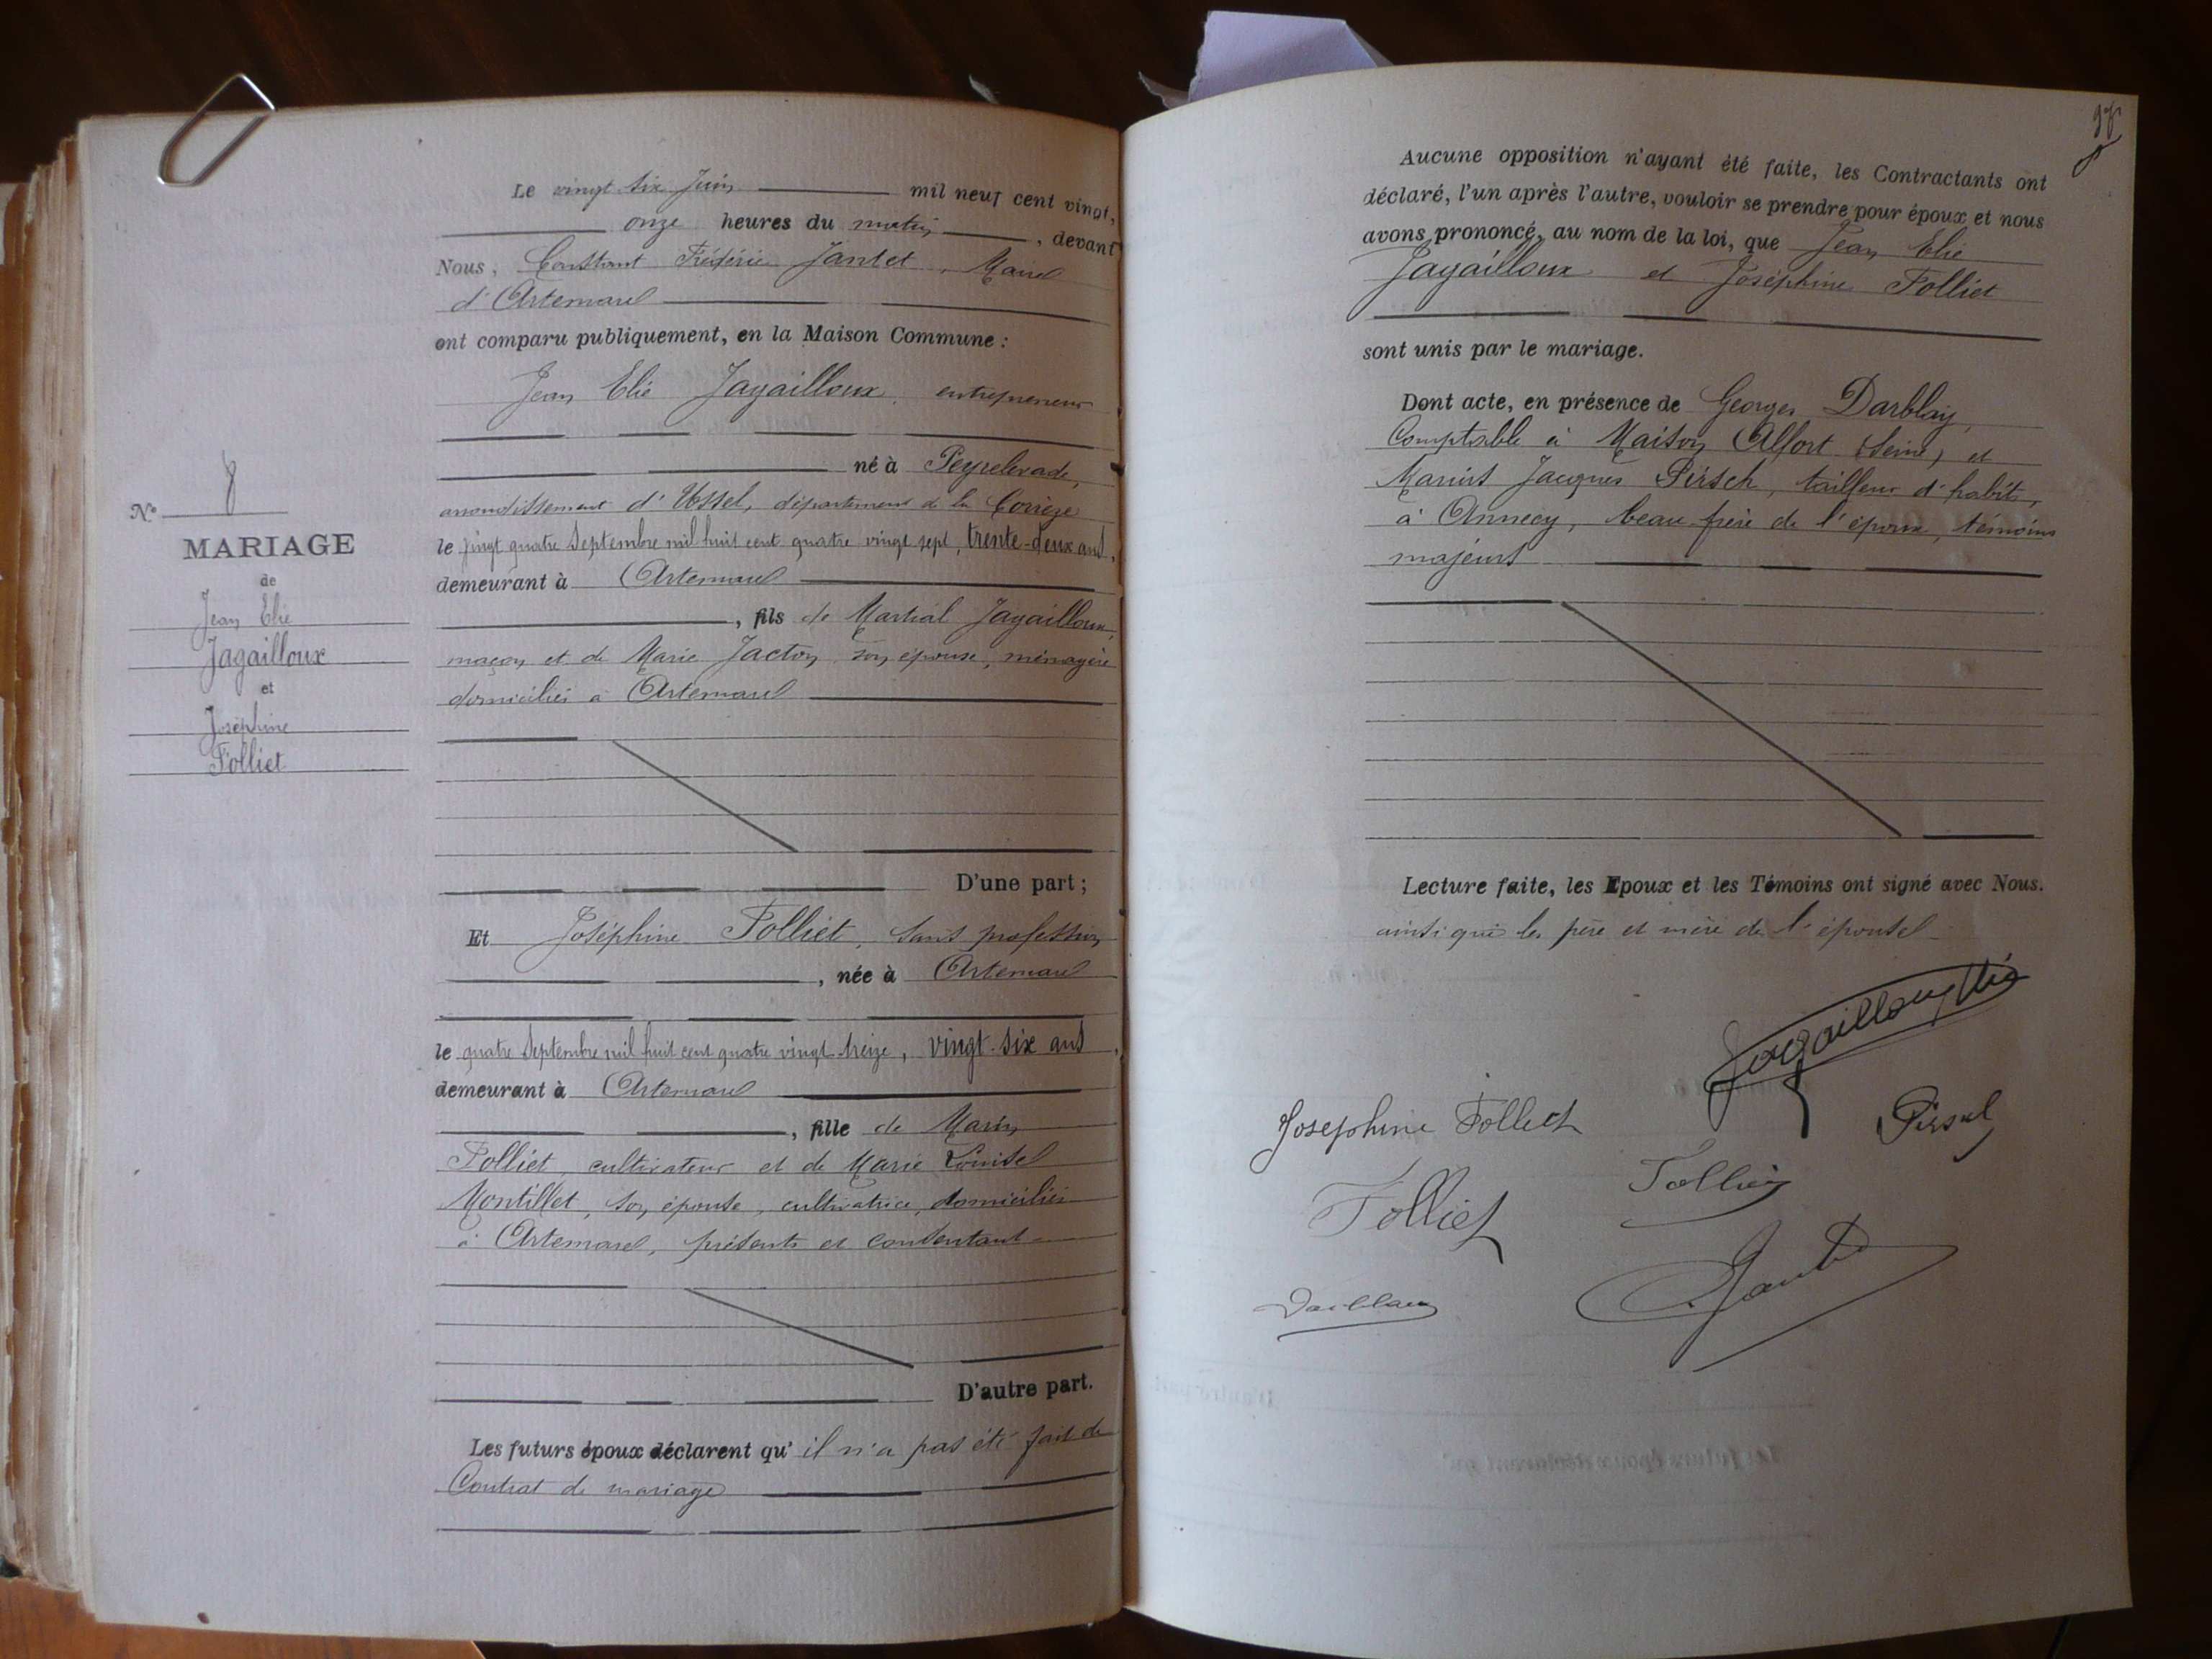 Le vingt six Juin mil neuf cent vingt,
onze heures du matin, devant
Nous, Constant Frédéric Jantet, Maire
d'Artemare
ont comparu publiquement, en la Maison Commune :
Jean Elie Jagailloux, entrepreneur
né à Peyrelevade,
arrondissement d'Ussel, département de la Corrèze
le vingt quatre Septembre mil huit cent quatre vingt sept, trente-deux ans,
demeurant à Artemare
, fils de Martial Jagailloux,
maçon et de Marie Jacton, son épouse, ménagère
domiciliés à Artemare
D'une part ;
Et Joséphine Folliet, sans profession
, née à Artemare
le quatre Septembre mil huit cent quatre vingt treize, vingt-six ans,
demeurant à Artemare
, fille de Marin
Folliet, cultivateur et de Marie Louise
Montillet, son épouse, cultivatrice, domiciliés
à Artemare, présents et consentant
D'autre part.
Les futurs époux déclarent qu'il n'a pas été fait de
Contrat de mariage
N° 8
MARIAGE
de
Jean Elie
Jagailloux
et
Joséphine
Folliet
Aucune opposition n'ayant été faite, les Contractants ont
déclaré, l'un après l'autre, vouloir se prendre pour époux et nous
avons prononcé, au nom de la loi, que Jean Elie
Jagailloux et Joséphine Folliet
sont unis par le mariage.
Dont acte, en présence de Georges Darblay,
Comptable à Maison Alfort (Seine) et
Marius Jacques Pirsch, tailleur d'habits,
à Annecy, beau-frère de l'époux, témoins
majeurs
Lecture faite, les Epoux et les Témoins ont signé avec Nous.
ainsi que les père et mère de l'épouse
Jagailloux Elie
Josephine Folliet
Folliet
Darblay
Jantet